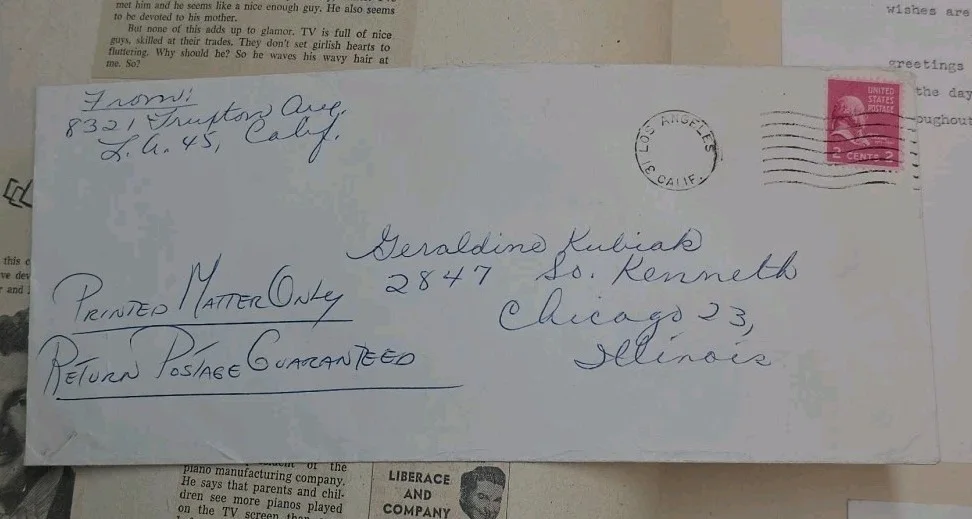 met him and he seems like a nice enough guy. He also seems
to be devoted to his mother.
But none of this adds up to glamor. TV is full of nice
guys, skilled at their trades. They don't set girlish hearts to
fluttering. Why should he? So he waves his wavy hair at
me. So?
wishes are
greetings
the day
oughout
From:
8321 Truxton Ave.
L.A. 45, Calif.
LOS ANGELES
31 CALIF.
UNITED
STATES
POSTAGE
2 CENTS 2
Geraldine Kubiak
2847 So. Kenneth
Chicago 23,
Illinois
PRINTED MATTER ONLY
RETURN POSTAGE GUARANTEED
this
ve
and
of the
piano manufacturing company.
He says that parents and chil-
dren see more pianos played
on the TV screen
LIBERACE
AND
COMPANY